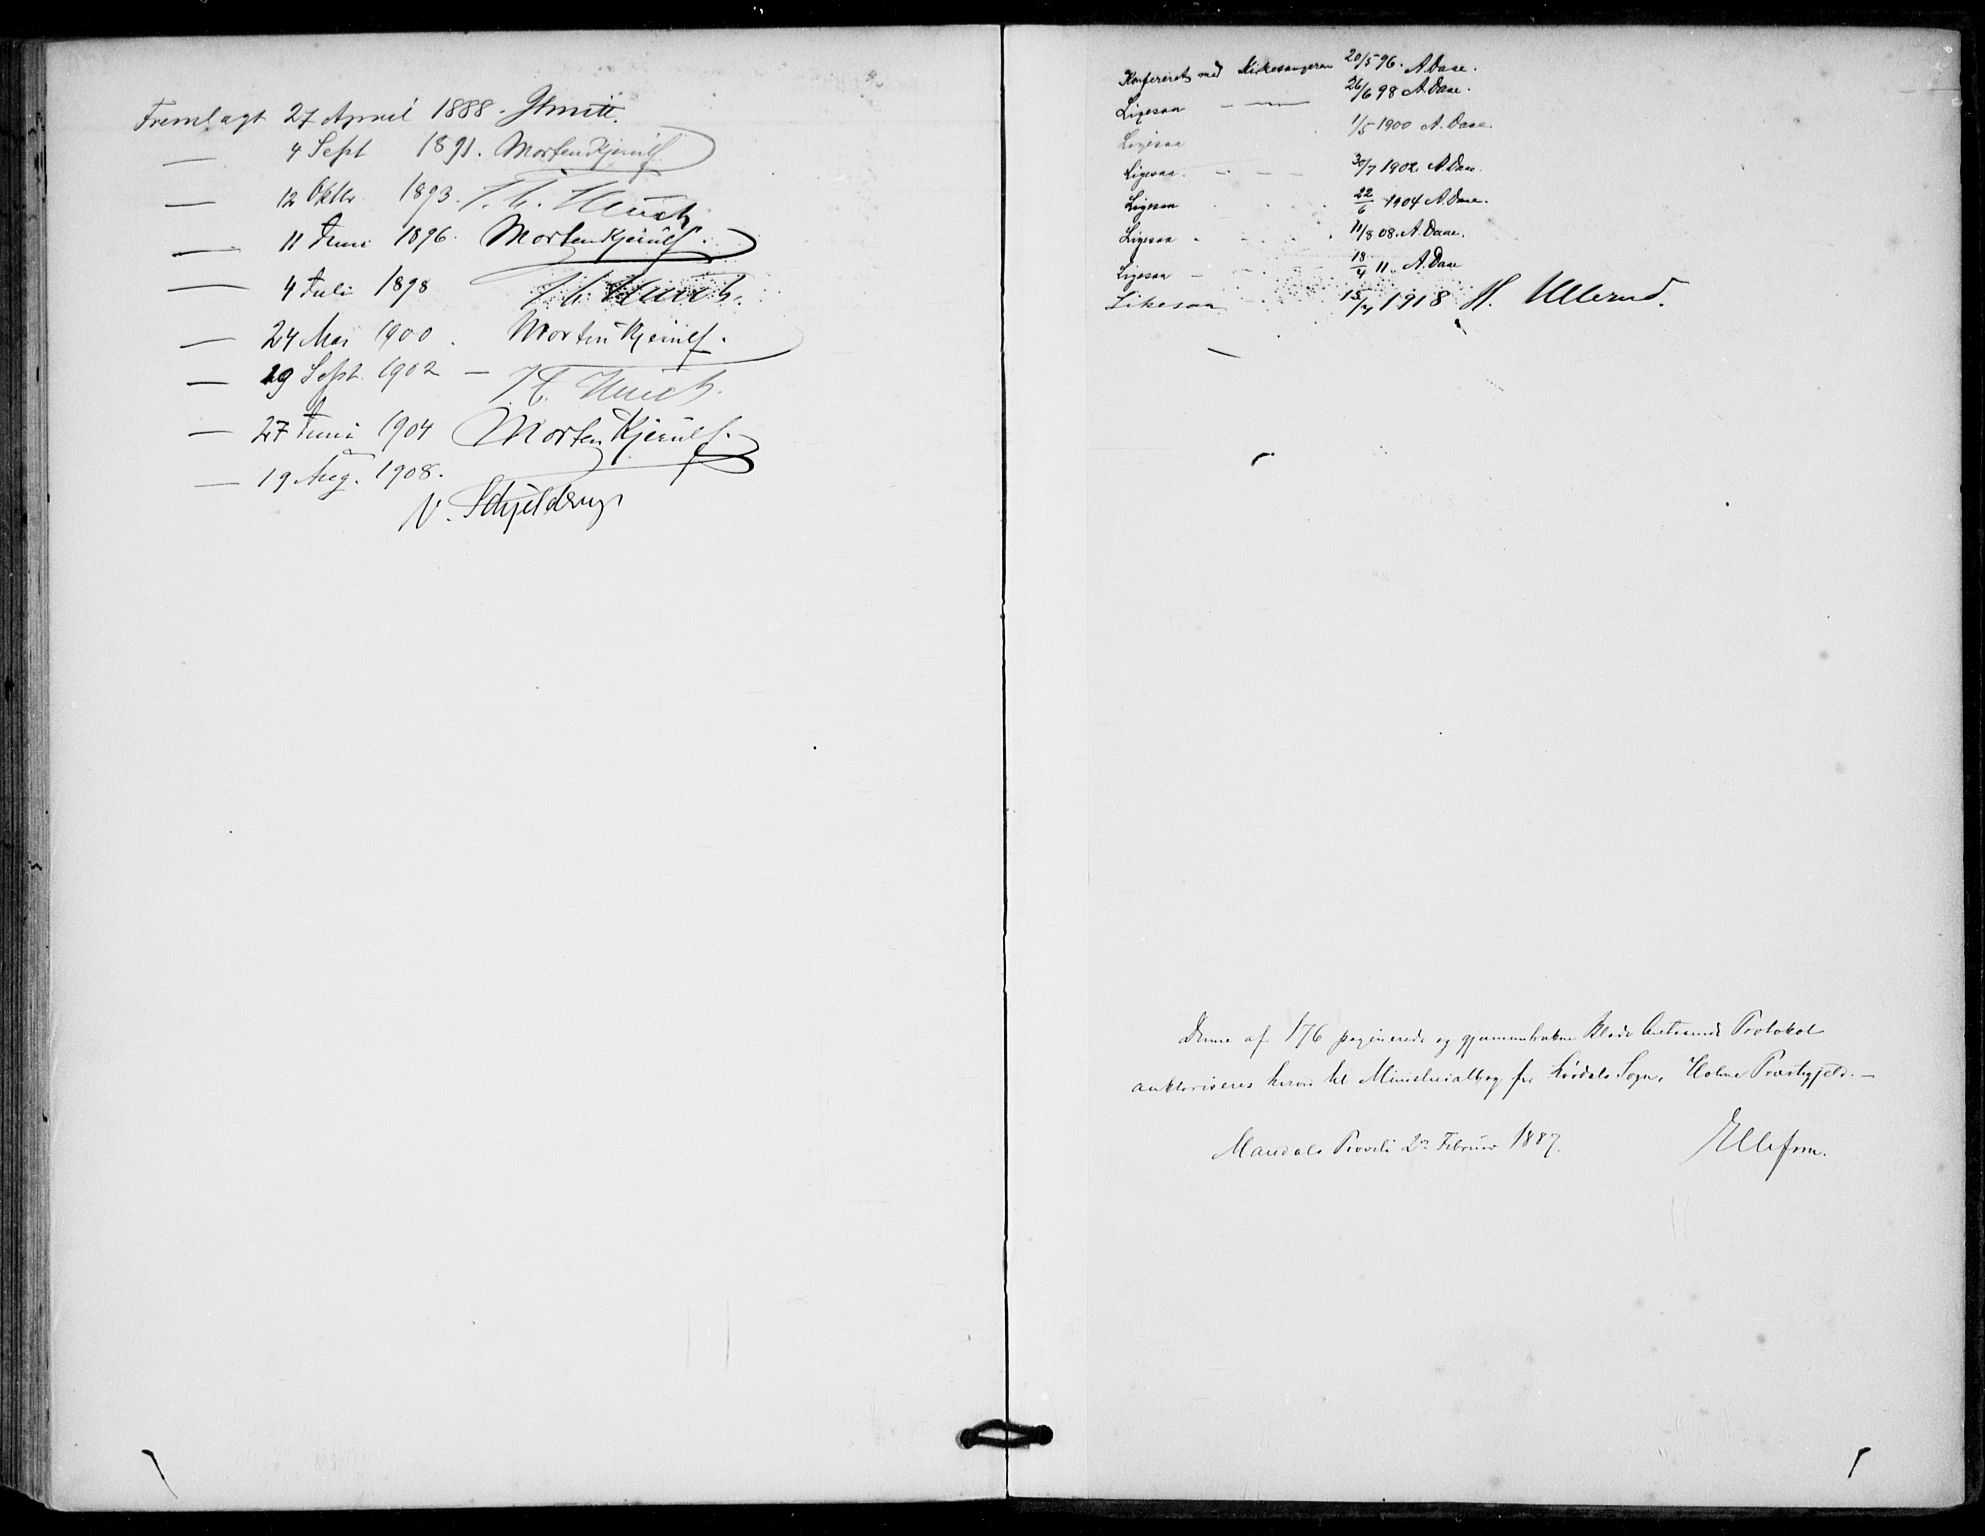 Fremlagt 27 April 1888. Smitt.
— 4 Sept 1891. Morten Kjerulf
— 12 Oktbr. 1893. J. C. Heuch
— 11 Juni 1896. Morten Kjerulf.
— 4 Juli 1898 J. C. Heuch.
— 24 Mai 1900. Morten Kjerulf.
— 29 Sept. 1902 — J. C. Heuch.
— 27 Juni 1904 Morten Kjerulf.
— 19 Aug. 1908.
N. Schjelderup
Konfereret med Kirkesangeren 20/5 96. A. Daae.
Ligesaa — — 26/6 98 A. Daae.
Ligesaa 1/5 1900 A. Daae.
Ligesaa. - - - 30/7 1902 A. Daae.
Ligesaa 22/6 1904 A. Daae.
Ligesaa - - - - 11/8 08. A. Daae.
Ligesaa - - - 18/4 11. A. Daae
Likesaa 15/7 1918 H. Ullerud.
Denne af 176 paginerede og gjennemtrukne Blade bestaaende Protokol
auktoriseres herved til Ministerialbog for Sogn, Holme Præstegjeld. —
Mandals Provsti 2den Februar 1887. Ellefsen.